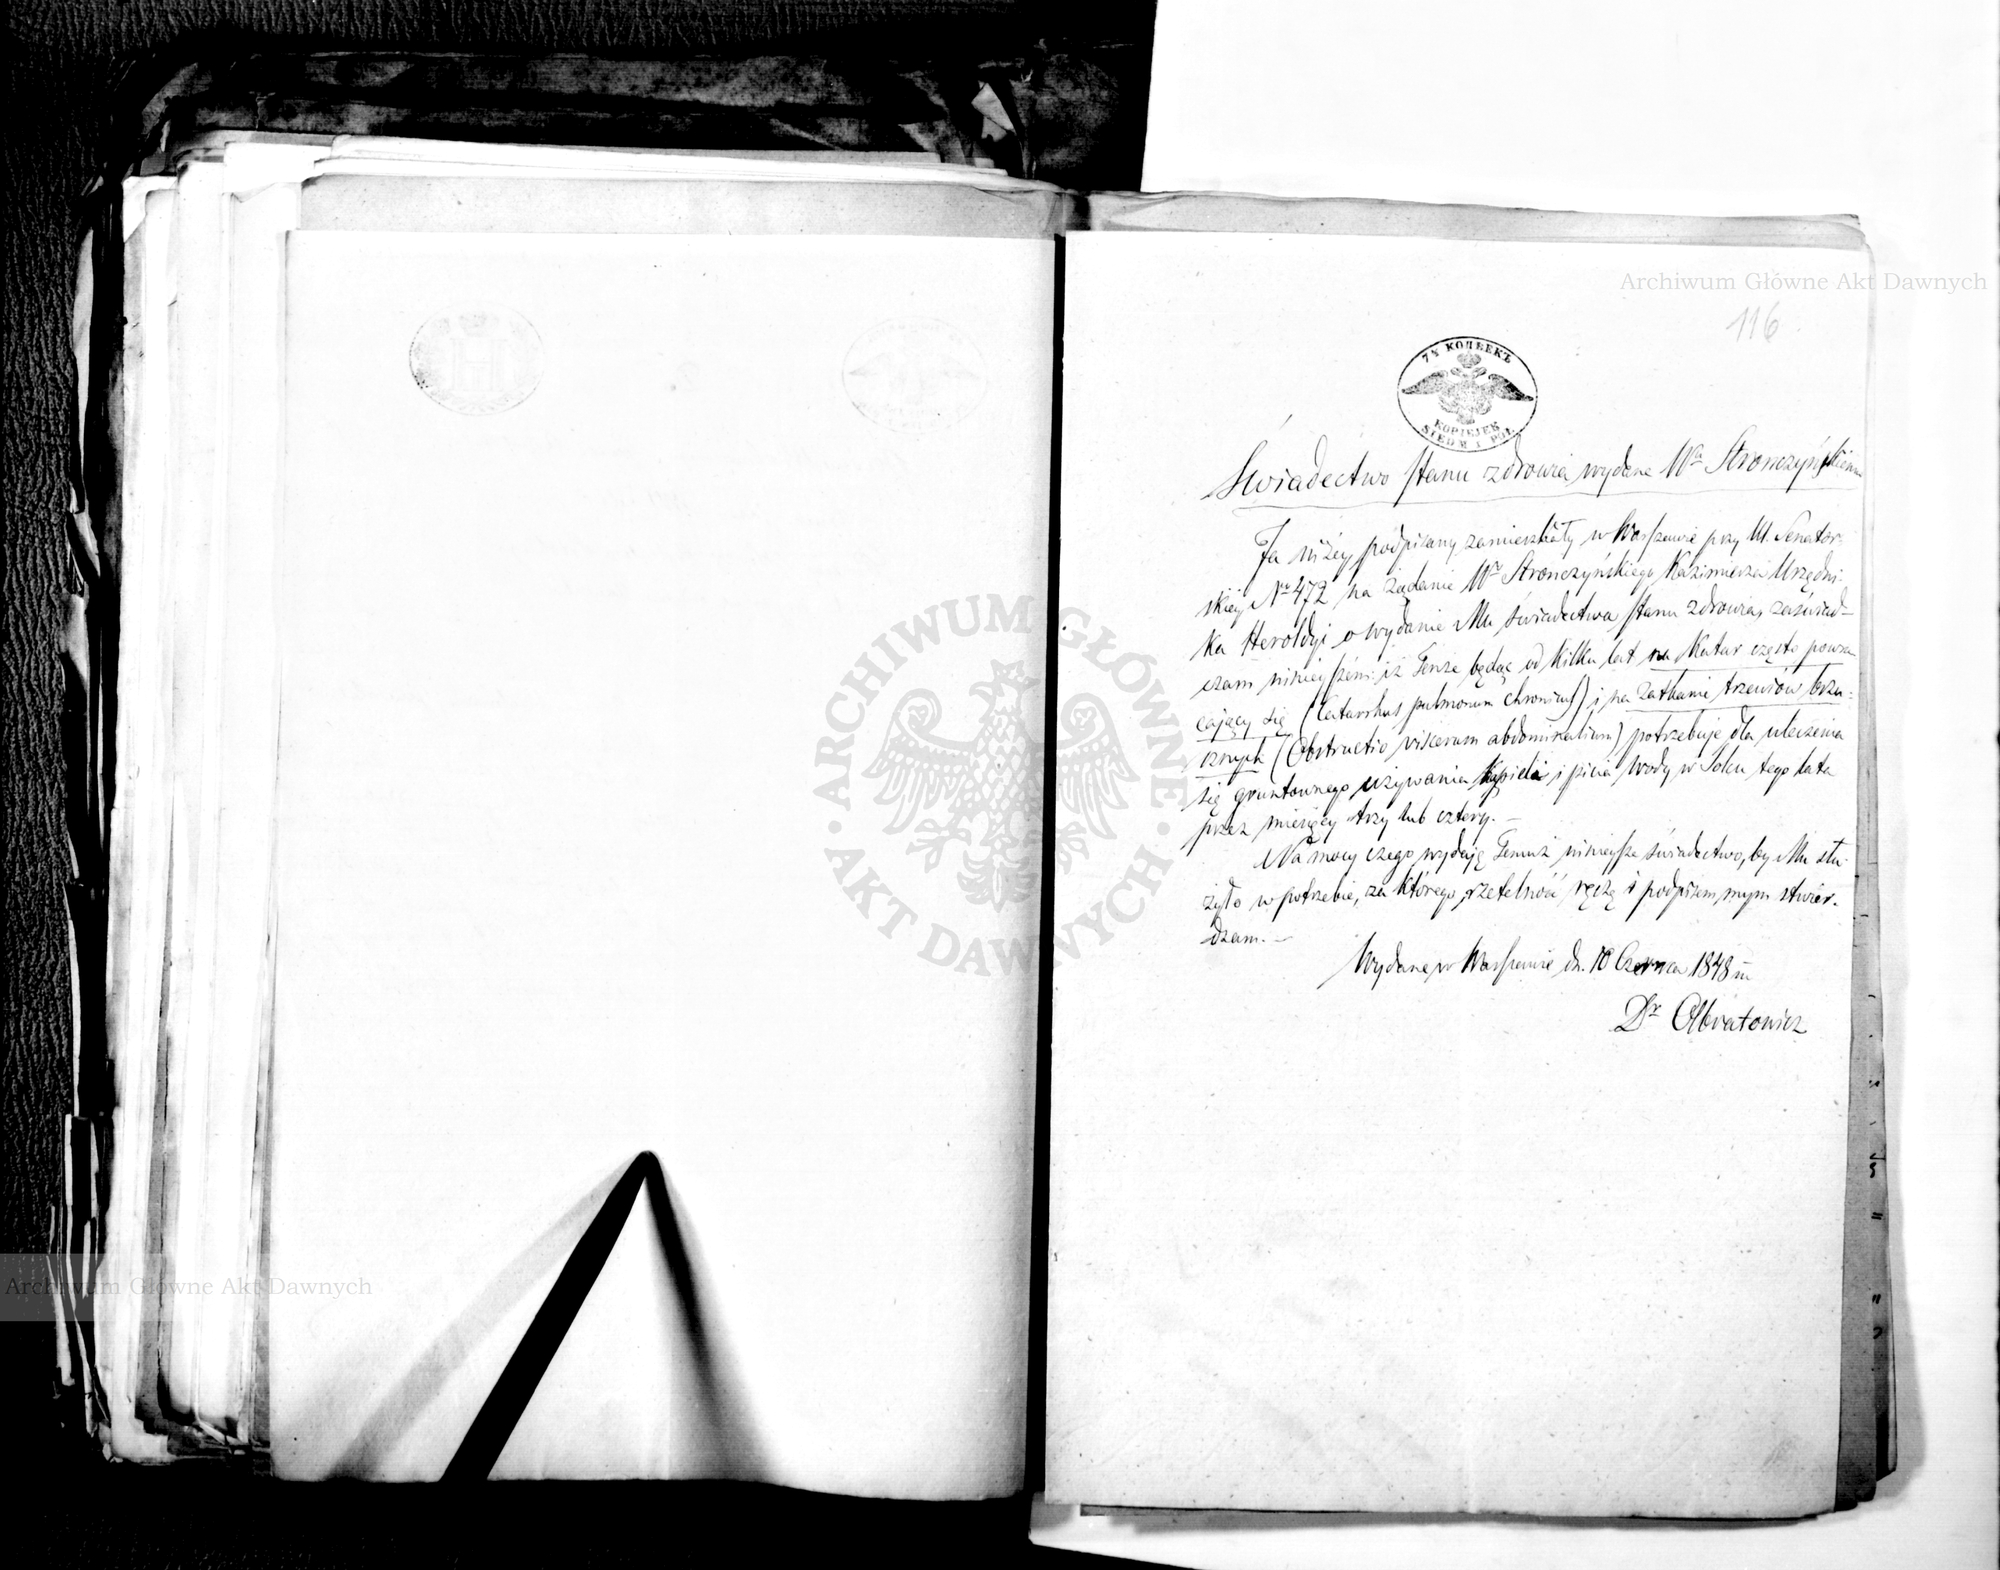 Archiwum Główne Akt Dawnych
116
7½ КОПѢЕКЪ
KOPIEJEK
SIEDM I PÓŁ
Świadectwo stanu zdrowia wydane Wu Stronczyńskiemu
Ja niżéy podpisany zamieszkały w Warszawie przy Ul. Senator-
skiéy Nro 472 na żądanie Wo Stronczyńskiego Kazimierza Urzędni-
ka Heroldyi o wydanie Mu świadectwa stanu zdrowia, zaświad-
czam niniejszém: iż Tenże będąc od kilku lat na Katar często powra-
cający się (Catarrhus pulmonum chronicus) i na Zatkanie trzewiów brzu-
sznych (Obstructio viscerum abdominalium) potrzebuje dla uleczenia
się gruntownego używania Kąpieli i picia Wody w Solcu tego lata
przez miesięcy trzy lub cztery. —
Na mocy czego wydaję Temuż niniejsze świadectwo, by Mu słu-
żyło w potrzebie, za którego rzetelność ręczę i podpisem mym stwier-
dzam. —
Wydane w Warszawie dn. 10 Czerwca 1848 m
Dr
ARCHIWUM GŁÓWNE
AKT DAWNYCH
Archiwum Główne Akt Dawnych